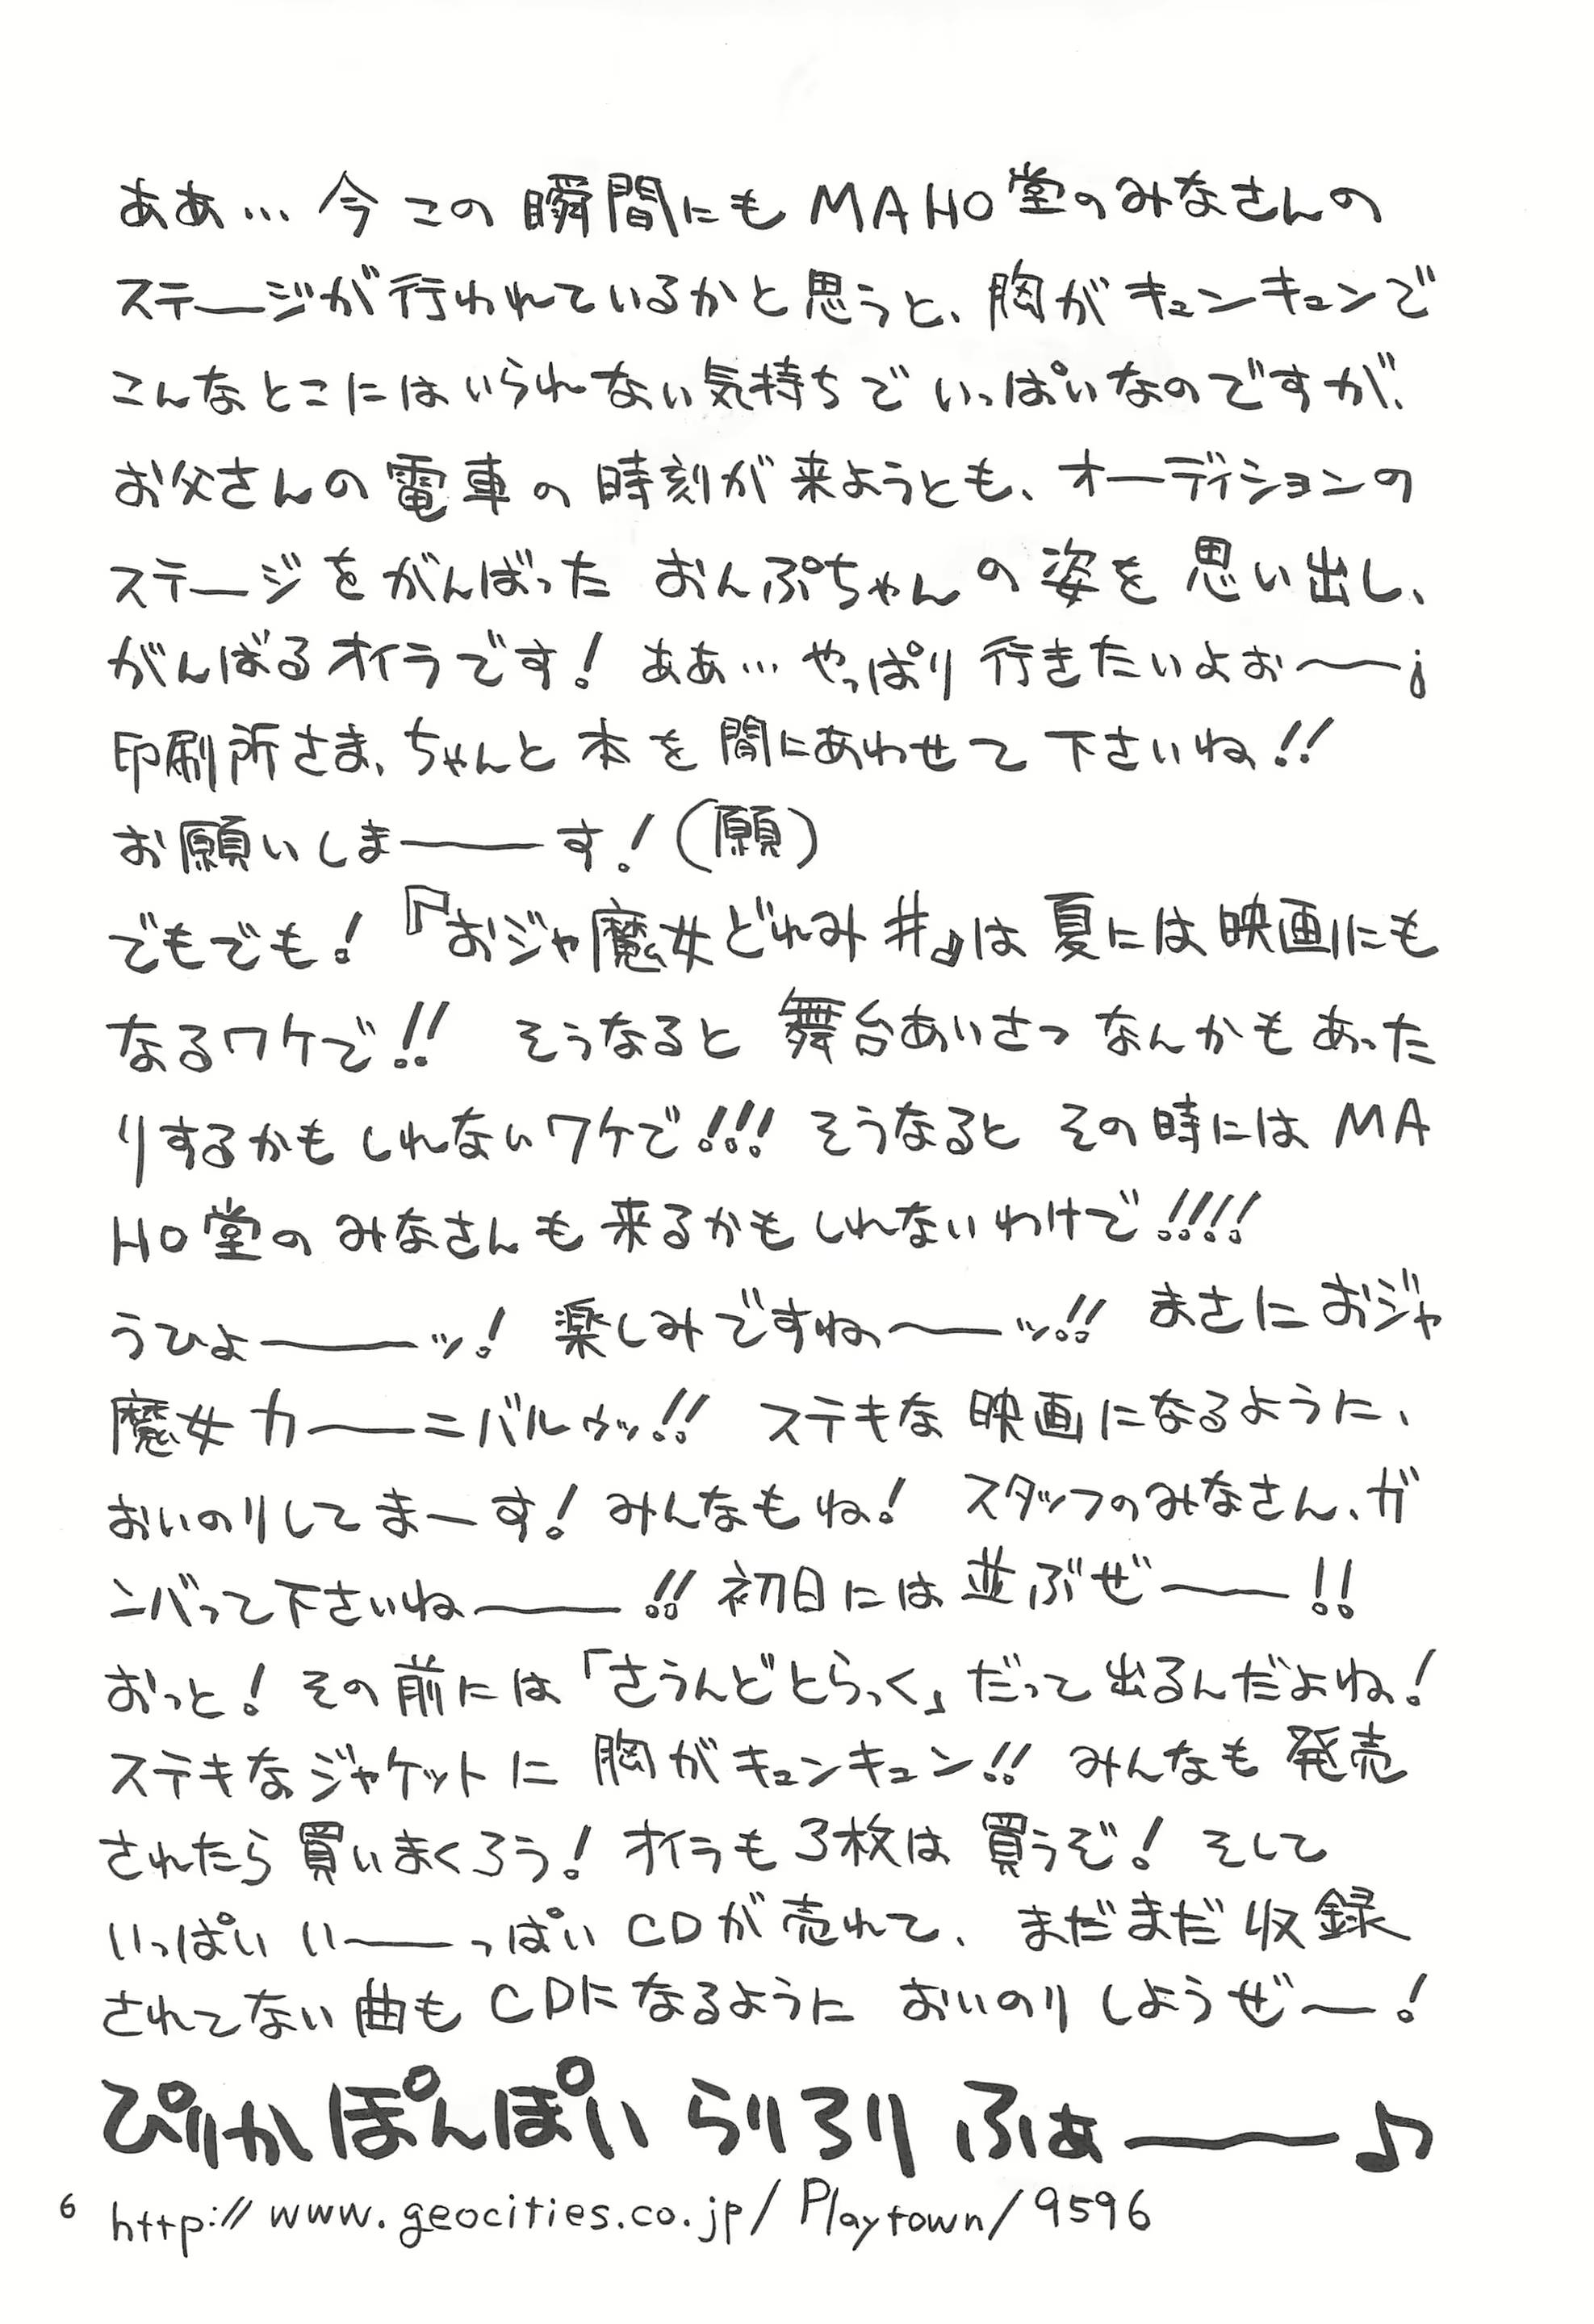 ああ…今この瞬間にもMAHO堂のみなさんの
ステージが行われているかと思うと、胸がキュンキュンで
こんなとこにはいられない気持ちでいっぱいなのですが、
お父さんの電車の時刻が来ようとも、オーディションの
ステージをがんばったおんぷちゃんの姿を思い出し、
がんばるオイラです!ああ…やっぱり行きたいよぉ〜〜¡
印刷所さま、ちゃんと本を間にあわせて下さいね!!
お願いしま――す!(願)
でもでも!『おジャ魔女どれみ#』は夏には映画にも
なるワケで!!そうなると舞台あいさつなんかもあった
りするかもしれないワケで!!!そうなるとその時にはMA
HO堂のみなさんも来るかもしれないわけで!!!!
うひょ――ッ!楽しみですね〜〜ッ!!まさにおジャ
魔女カ――ニバルゥッ!!ステキな映画になるように、
おいのりしてまーす!みんなもね!スタッフのみなさん、ガ
ンバって下さいね――!!初日には並ぶぜ――!!
おっと!その前には「さうんどとらっく」だって出るんだよね!
ステキなジャケットに胸がキュンキュン!!みんなも発売
されたら買いまくろう!オイラも3枚は買うぞ!そして
いっぱいい――っぱいCDが売れて、まだまだ収録
されてない曲もCDになるようにおいのりしようぜ〜!
ぴりかぽんぽい らりろり ふぁ――♪
6 http://www.geocities.co.jp/Playtown/9596